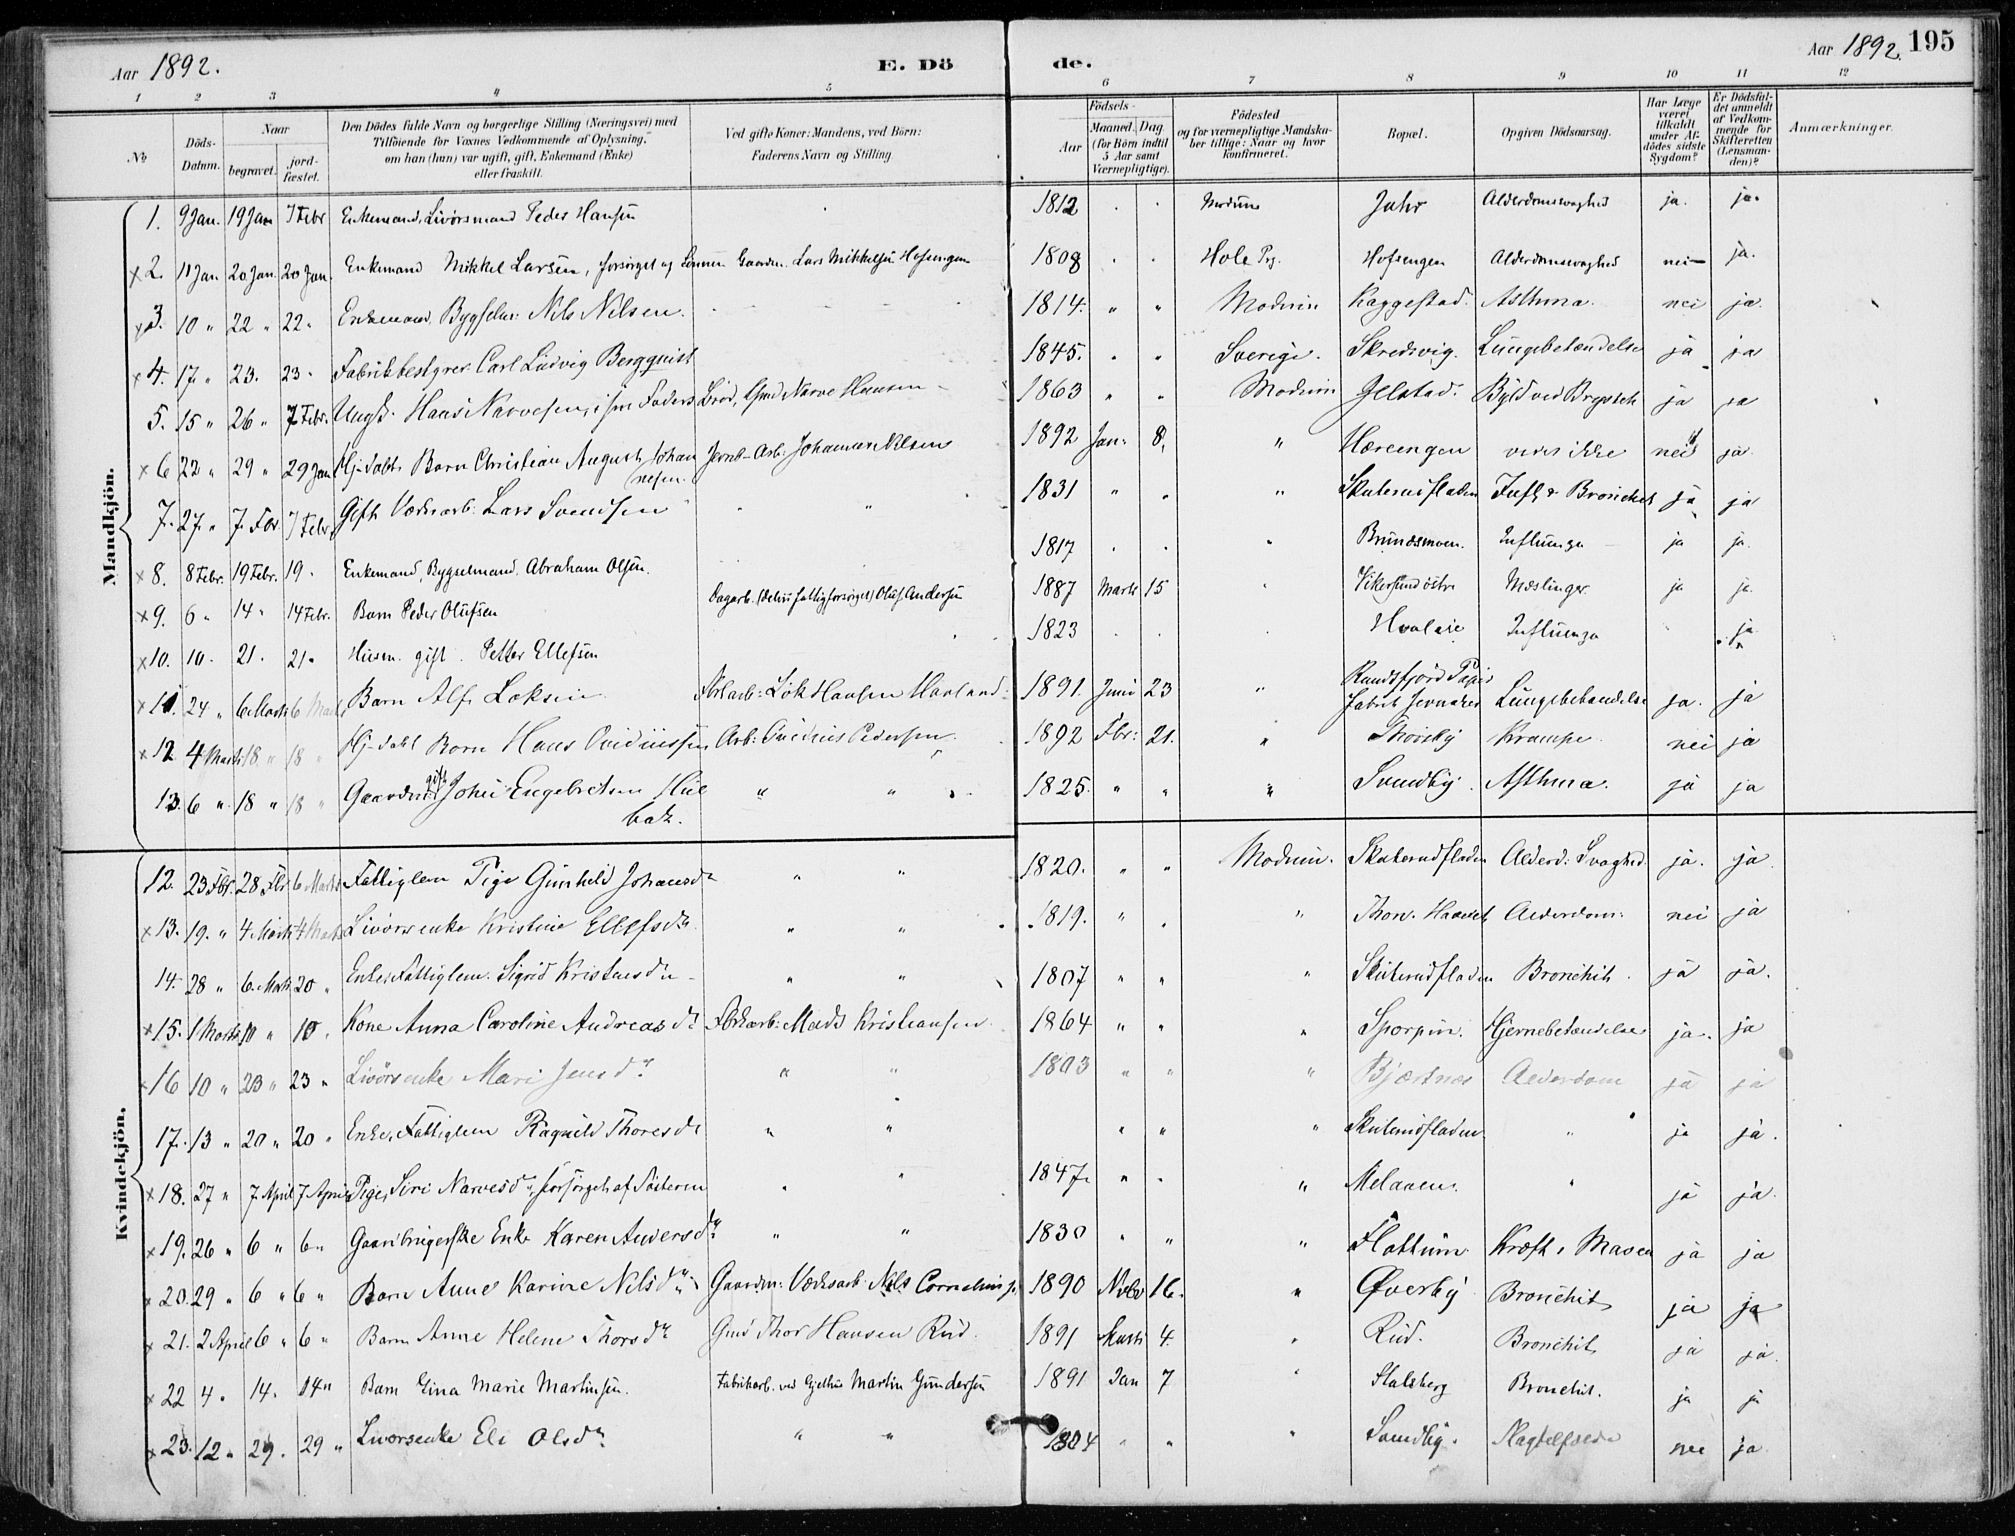 Aar 1892. E. Dö de. Aar 1892. 195
1 2 3 4 5 6 7 8 9 10 11 12
No
Döds-Datum.
Naar
begravet.
jord-fæstet.
Den Dödes fulde Navn og borgerlige Stilling (Næringsvei) med
Tilföiende for Voxnes Vedkommende af Oplysning,
om han (hun) var ugift, gift, Enkemand (Enke)
eller fraskilt.
Ved gifte Koner: Mandens, ved Börn:
Faderens Navn og Stilling.
Födsels-
Aar
Maaned. Dag
(for Börn indtil
5 Aar samt
Værnepligtige).
Födested
og for værnepligtige Mandska-
ber tillige: Naar og hvor
konfirmeret.
Bopæl.
Opgiven Dödsaarsag.
Har Læge
været
tilkaldt
under Af-
dödes sidste
Sygdom?
Er Dödsfal-
det anmeldt
af Vedkom-
mende for
Skifteretten
(Lensman-
den)?
Anmærkninger.
Mandkjön.
1. 9 Jan. 19 Jan 7 Febr Enkemand, Livörsmand Peder Hansen 1812 . . Modum Jahr Alderdomssvaghed ja. ja.
x 2. 11 Jan 20 Jan. 20 Jan. Enkemand Mikkel Larsen, forsörget af Sönnen Gaardm. Lars Mikkelsen Hofsengen 1808 . . Hole Pg. Hofsengen Alderdomssvaghed nei ja.
x 3. 10 " 22 " 22 " Enkemand, Bygselm. Nils Nilsen. 1814. " " Modum Kaggestad. Asthma. nei ja.
x 4. 17 " 23. 23 " Fabrikbestyrer Carl Ludvig Bergquist 1845. " " Sverige. Skredsvig. Lungebetændelse ja ja
5. 15 " 26 " 7 Febr. Ungk. Hans Narvesen, i sin Faders Bröd, Gmd Narve Hansen 1863 " " Modum Gelstad. Byld ved Brystet ja ja
x 6 22 " 29 " 29 Jan Hj-dabt Barn Christian August Johan Jernb-Arb. Johannes Nilsen 1892 Jan. 8, " Hæreengen vides ikke nei ja.
(nesen.
7. 27 " 7. Fbr 7 Febr. Gift Værksarb. Lars Svendsen " " 1831 " " " Skuterudfladen Inft & Bronchit ja ja
x 8. 8 Febr. 19 Febr. 19 " Enkemand, Bygselmand, Abraham Olsen. 1817 . . " Brunesmoen. Influenza ja ja.
x 9. 6 " 14 " 14 Febr. Barn Peder Olufsen Dagarb. (delvis fattigforsörget) Oluf Andersen 1887 Marts 15 " Vikersund östre Mæslinger ja ja.
x 10. 10. 21. 21. Husm. gift. Petter Ellefsen 1823 . . . Influenza ja
x 11. 24 " 6 Marts 6 Marts Barn Alf Loksen Fbrkarb: Lok Hansen Haaland. 1891. Juni 23 " Randsfjord Papir
Fabrik Jevnaker Lungebetændelse ja. ja
x 12 4 Marts 18 " 18 " Hj-dabt Barn Hans Ovidiussen Arb: Ovidius Pedersen. 1892 Fbr: 21. " Thorsby Krampe nei ja
13. 6 " 18 " 18 " Gaardm gift John Engebretsen Hul " " 1825. " " " Svendby. Asthma. ja ja
bak.
Kvindekjön.
12. 23 Fbr. 28 Fbr 6 Marts Fattiglem Pige Gunhild Johansdr " " 1820. " " Modum. Skuterudfladen Alderd: Svaghed ja. ja
x 13. 19. " 4. Marts 4 Marts Livörsenke Kristine Ellefsdr " " 1819. " " " Thon. Alderdom. nei ja
14. 28 " 6. Marts 20 " Enke, Fattiglem. Sigrid Kristensdr " " 1807 " " " Skuterudfladen Bronchit. ja ja.
x 15. 1 Marts 10 " 10 " Kone Anna Caroline Andreasdr Fbrkarb: Mads Kristiansen. 1864 " " " Sporpin. Hjernebetændelse ja. ja
x 16 10 " 23 " 23 " Livörsenke Mari Jensdr. " " 1803 " " " Bjærtnæs Alderdom ja ja
17. 13 " 20 " 20 " Enke, Fattiglem Ragnild Thoresdr " " " " " Skuterudfladen. " ja ja.
x 18. 27 " 7 April 7 April Pige, Siri Narvesdr, forsörget af Söstren " " 1847. " " " Melaaen. " ja ja.
x 19. 26 " 6 " 6 " Gaardbrugerske Enke Karen Andersdr " " 1830 " " " Flattum Kræft i Maven ja ja
x 20. 29 " 6 " 6 " Barn Anne Karine Nilsdr Gaardm: Værksarb Nils Corneliusn. 1890 Novbr 16. " Øverby Bronchit ja ja
x 21. 2 April 6 " 6 " Barn Anne Helene Thorsdr Gmd Thor Hansen Rud. 1891 Marts 4. " Rud. Bronchit ja ja.
x 22 4 " 14. 14 " Barn Gina Marie Martinsen. Fabrikarb. ved Gjethus Martin Gundersen 1891 Jan 7 " Stalsberg Bronchit. ja ja
x 23. 12 " 29. 29 " Livörsenke Eli Olsdr. " " 1804 " " " Svendby. nei ja.